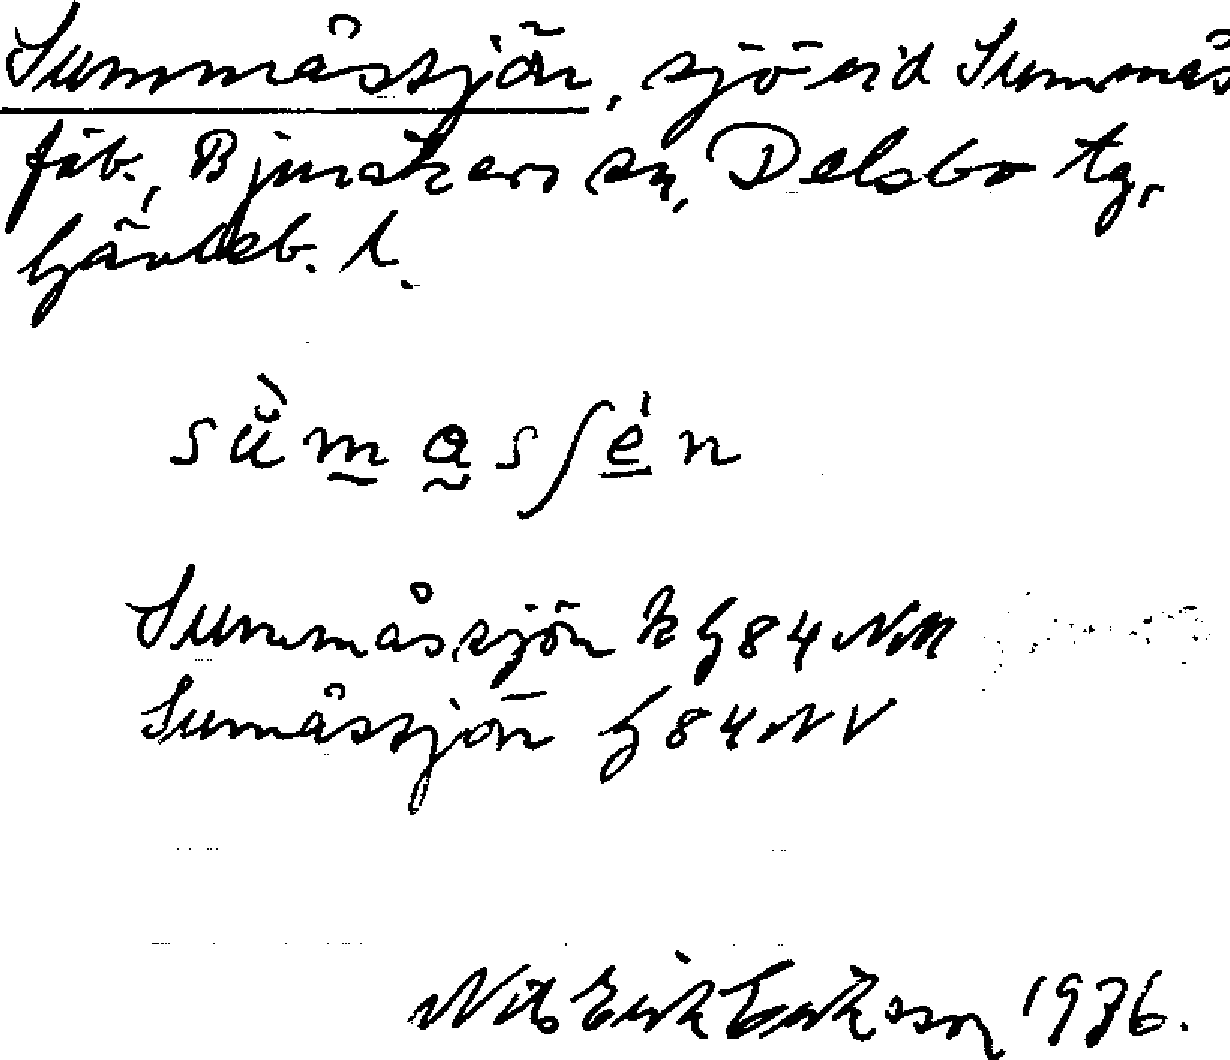 Summåssjön, sjö vid Summås
fäb., Bjuråkers sn, Delsbo tg,
Gävleb. l.
sŭ̀m̲a̰sʃé̲n
Summåssjön k G84 NM
Sumåssjön G84NV
Nils Erik Eriksson 1936.